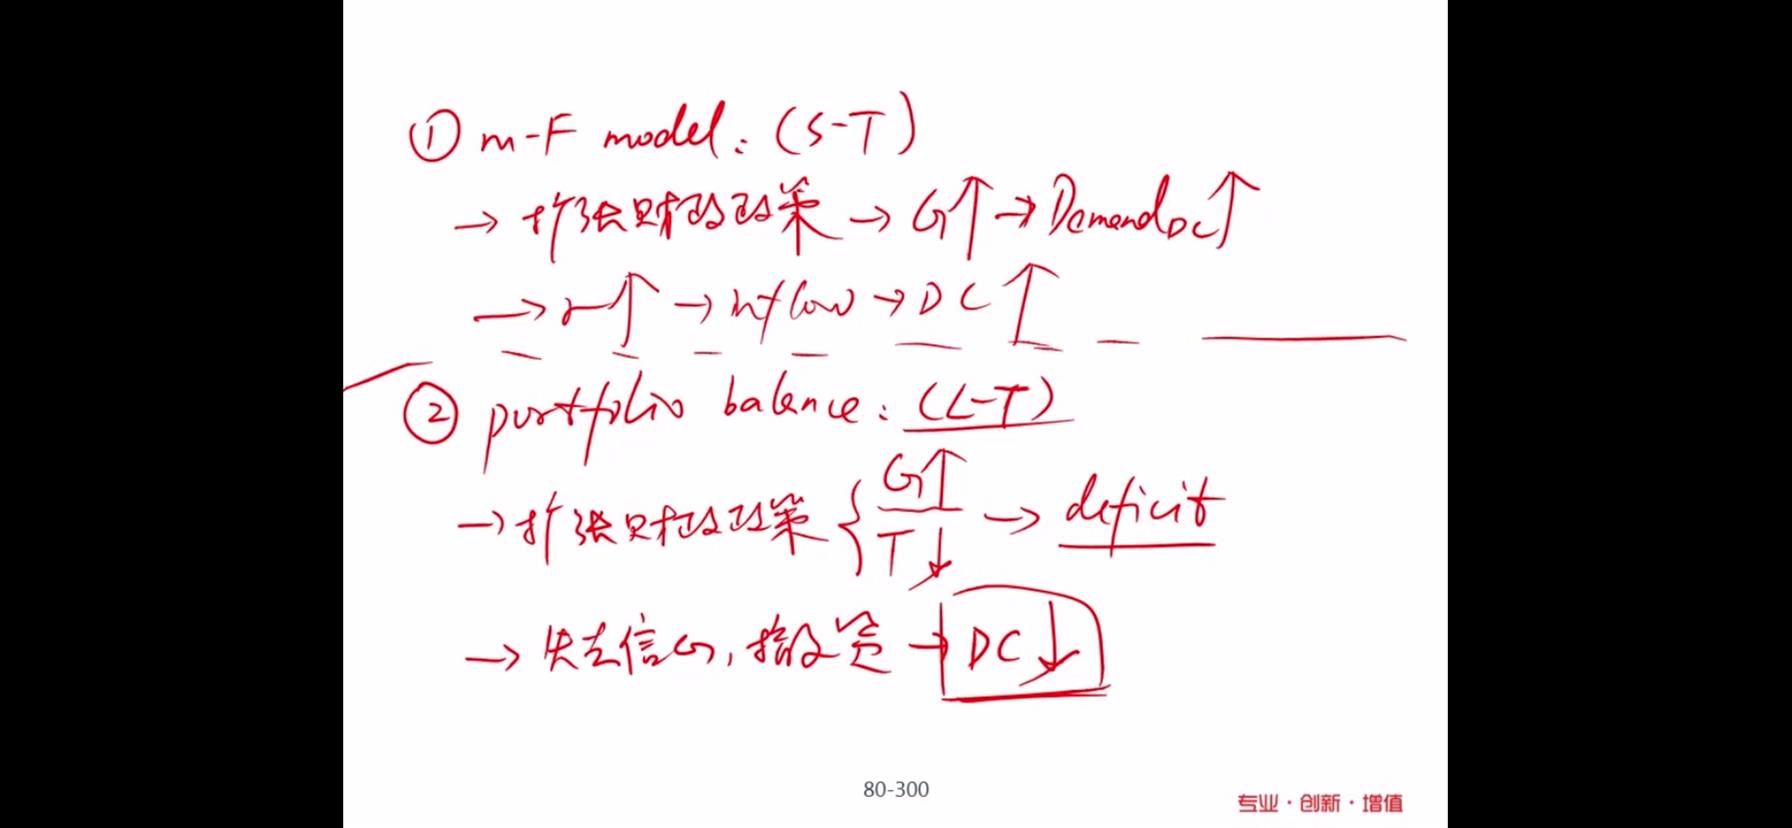 ① m-F model: (S-T)
→ 扩张财政政策 → G↑ → Demand DC↑
→ r↑ → inflow → DC↑
② portfolio balance: (L-T)
→ 扩张财政政策 { G↑ T↓ → deficit
→ 失去信心, 撤资 → DC↓
80-300
专业·创新·增值